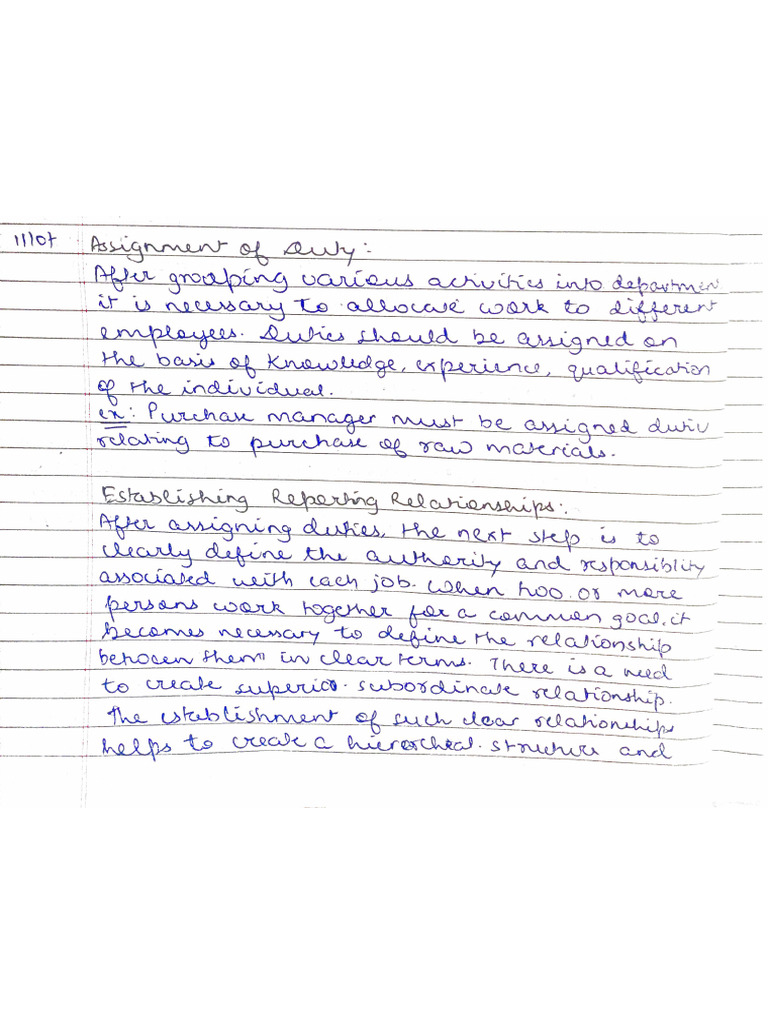 11/07 Assignment of Duty:
After grouping various activities into departmen
it is necessary to allocate work to different
employees. Duties should be assigned on
the basis of knowledge, experience, qualification
of the individual.
ex: Purchase manager must be assigned dutie
relating to purchase of raw materials.
Establishing Reporting Relationships:.
After assigning duties, the next step is to
clearly define the authority and responsiblity
associated with each job. When two or more
persons work together for a common goal, it
becomes necessary to define the relationship
between them in clear terms. There is a need
to create superior-subordinate relationship.
The establishment of such clear relationships
helps to create a hierarcheal structure and